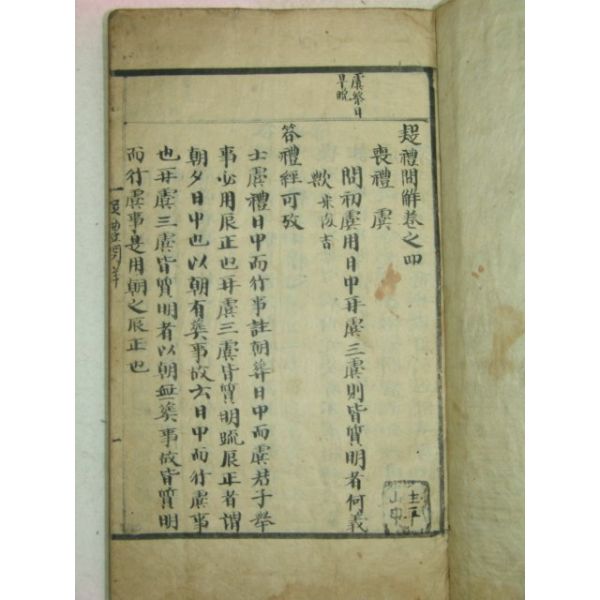 疑禮問解卷之四
喪禮 虞
虞祭日
早晩
問初虞用日中再虞三虞則皆質明者何義
歟 宋浚吉
答禮經可攷
士虞禮日中而行事註朝葬日中而虞君子擧
事必用辰正也再虞三虞皆質明疏辰正者謂
朝夕日中也以朝有葬事故六日中而行虞事
也再虞三虞皆質明者以朝無葬事故皆質明
而行虞事是用朝之辰正也
疑禮問解
一